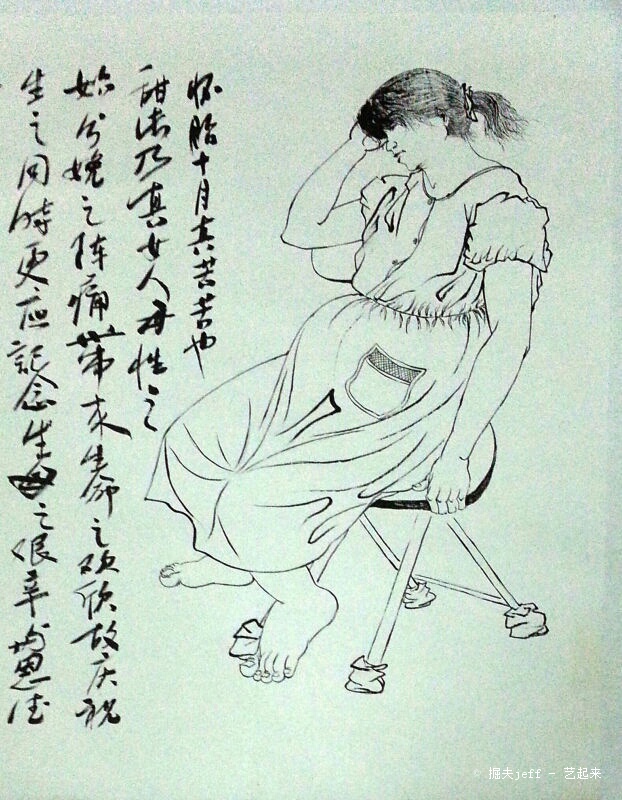 怀胎十月真苦苦也
甜乃真女人母性之
始分娩之阵痛带来生命之欢欣故庆祝
生之同時更应記念生母之艰辛与恩德
© 掘夫jeff - 艺起来